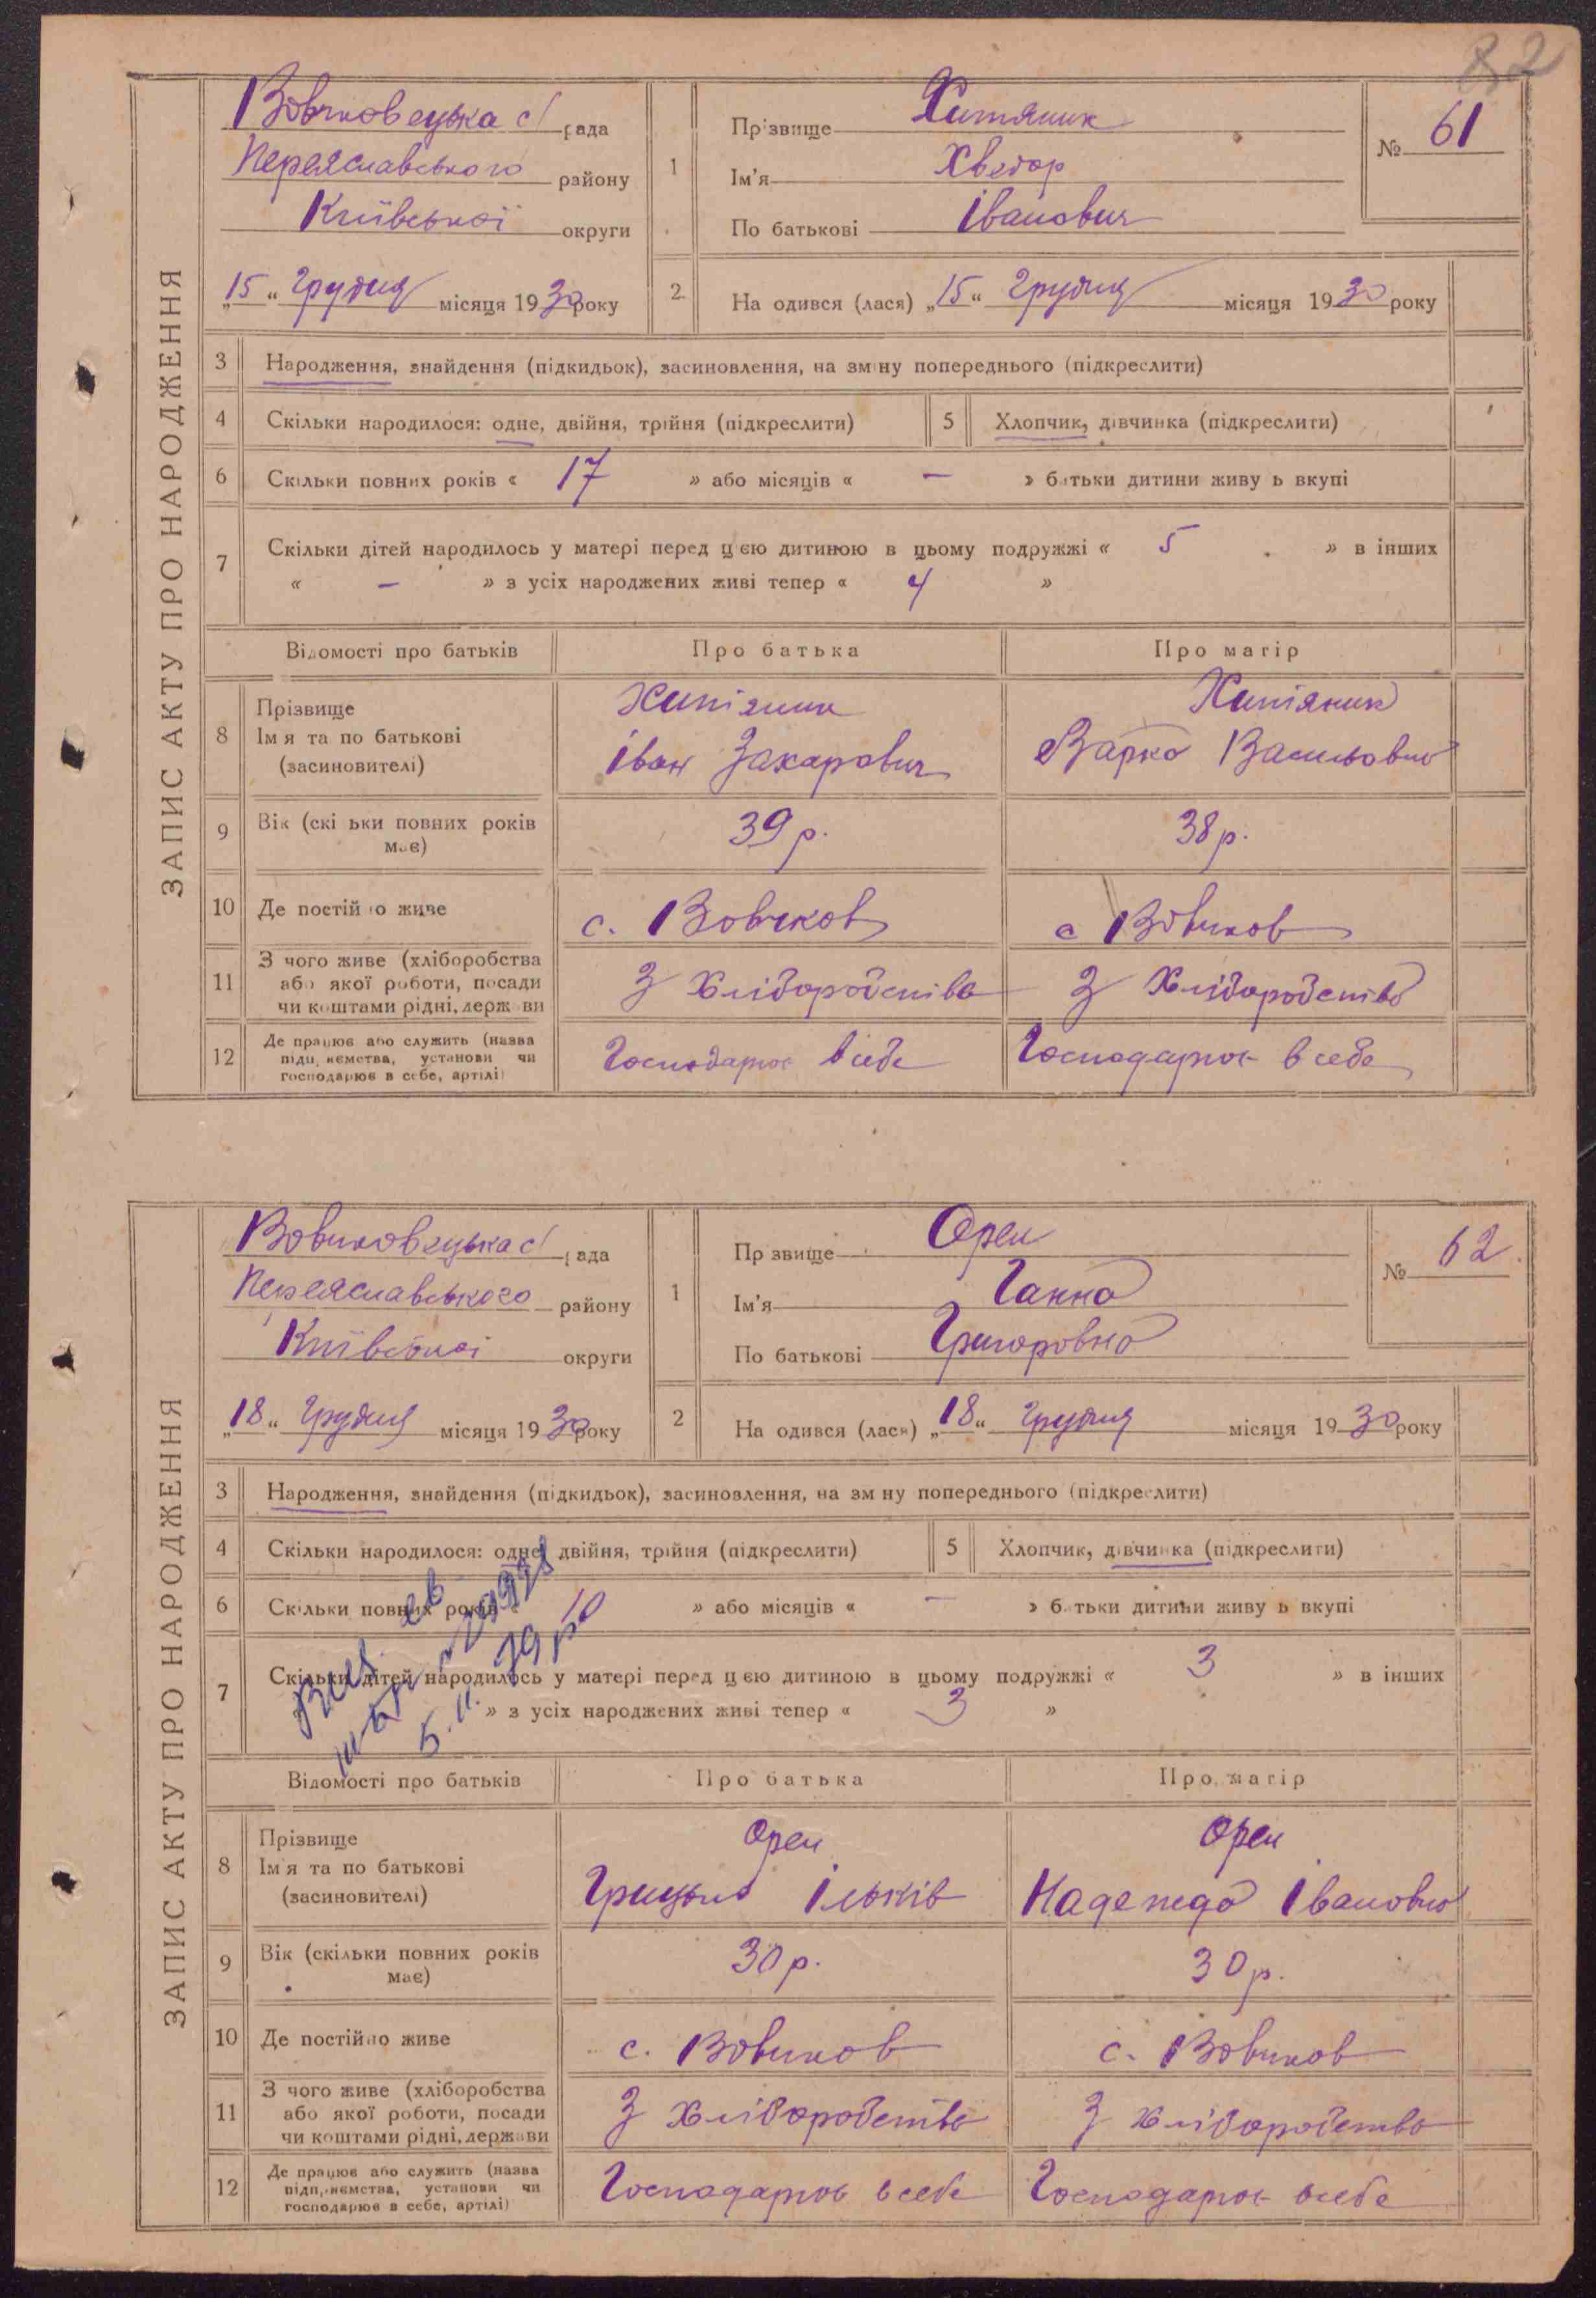 82
ЗАПИС АКТУ ПРО НАРОДЖЕННЯ
Вовчковецька с/рада
Переяславського району
Київської округи
„15“ Грудня місяця 1930 року
1
Прізвище Хитяник
Ім'я Хведор
По батькові Іванович
№ 61
2 На одився (лася) „15“ Грудня місяця 1930 року
3 Народження, знайдення (підкидьок), засиновлення, на зміну попереднього (підкреслити)
4 Скільки народилося: одне, двійня, трійня (підкреслити) 5 Хлопчик, дівчинка (підкреслити)
6 Скільки повних років « 17 » або місяців « — » батьки дитини живу ь вкупі
7 Скільки дітей народилось у матері перед цією дитиною в цьому подружжі « 5 » в інших
« — » з усіх народжених живі тепер « 4 »
Відомості про батьків Про батька Про матір
8 Прізвище
Ім я та по батькові
(засиновителі)
Хитяник
Іван Захарович
Хитяник
Варка Васильовна
9 Вік (скі ьки повних років має) 39 р. 38 р.
10 Де постійно живе с. Вовчков с Вовчков
11 З чого живе (хліборобства
або якої роботи, посади
чи коштами рідні, держави
З Хліборобства З Хліборобства
12 Де працює або служить (назва
підп, иємства, установи чи
господарює в себе, артілі)
Господарює в себе Господарює в себе
ЗАПИС АКТУ ПРО НАРОДЖЕННЯ
Вовчковецька с/рада
Переяславського району
Київської округи
„18“ Грудня місяця 1930 року
1
Пр звище Орел
Ім'я Ганна
По батькові Григоровна
№ 62
2 На одився (лася) „18“ Грудня місяця 1930 року
3 Народження, знайдення (підкидьок), засиновлення, на зм ну попереднього (підкреслити)
4 Скільки народилося: одне, двійня, трійня (підкреслити) 5 Хлопчик, дівчинка (підкреслити)
6 Скільки повних років 10 » або місяців « — » батьки дитини живу ь вкупі
7 Скільки дітей народилось у матері перед цією дитиною в цьому подружжі « 3 » в інших
» з усіх народжених живі тепер « 3 »
5.11. 79 р
Відомості про батьків Про батька Про матір
8 Прізвище
Ім я та по батькові
(засиновителі)
Орел
Грицько Ільків
Орел
Надежда Івановна
9 Вік (скільки повних років має) 30 р. 30 р.
10 Де постійно живе с. Вовчков с. Вовчков
11 З чого живе (хліборобства
або якої роботи, посади
чи коштами рідні, держави
З Хліборобства З хліборобства
12 Де працює або служить (назва
підп, иємства, установи чи
господарює в себе, артілі)
Господарює в себе Господарює в себе